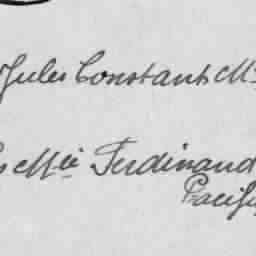 Jules Constant M
Mie Ferdinand
Pacif